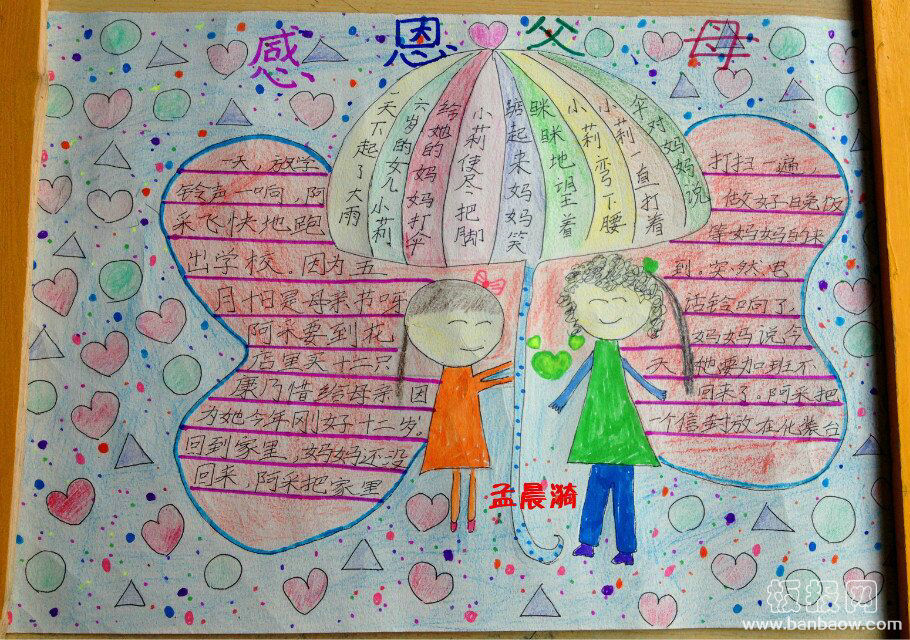 感恩父母
一天下起了大雨
六岁的女儿小莉
给她的妈妈打伞
小莉使尽把脚
踮起来妈妈笑
眯眯地望着
小莉弯下腰
小莉一直打着
伞对妈妈说
一天,放学
铃声一响,阿
采飞快地跑
出学校.因为五
月十日是母亲节呀
阿采要到花
店里买十二只
康乃惜给母亲,因
为她今年刚好十二岁,
回到家里,妈妈还没
回来,阿采把家里
打扫一遍,
做好晚饭
等妈妈回来
到.突然电
话铃响了.
妈妈说今
天她要加班不
回来了.阿采把
一个信封放在化装台
孟晨漪
板报网
www.banbaow.com